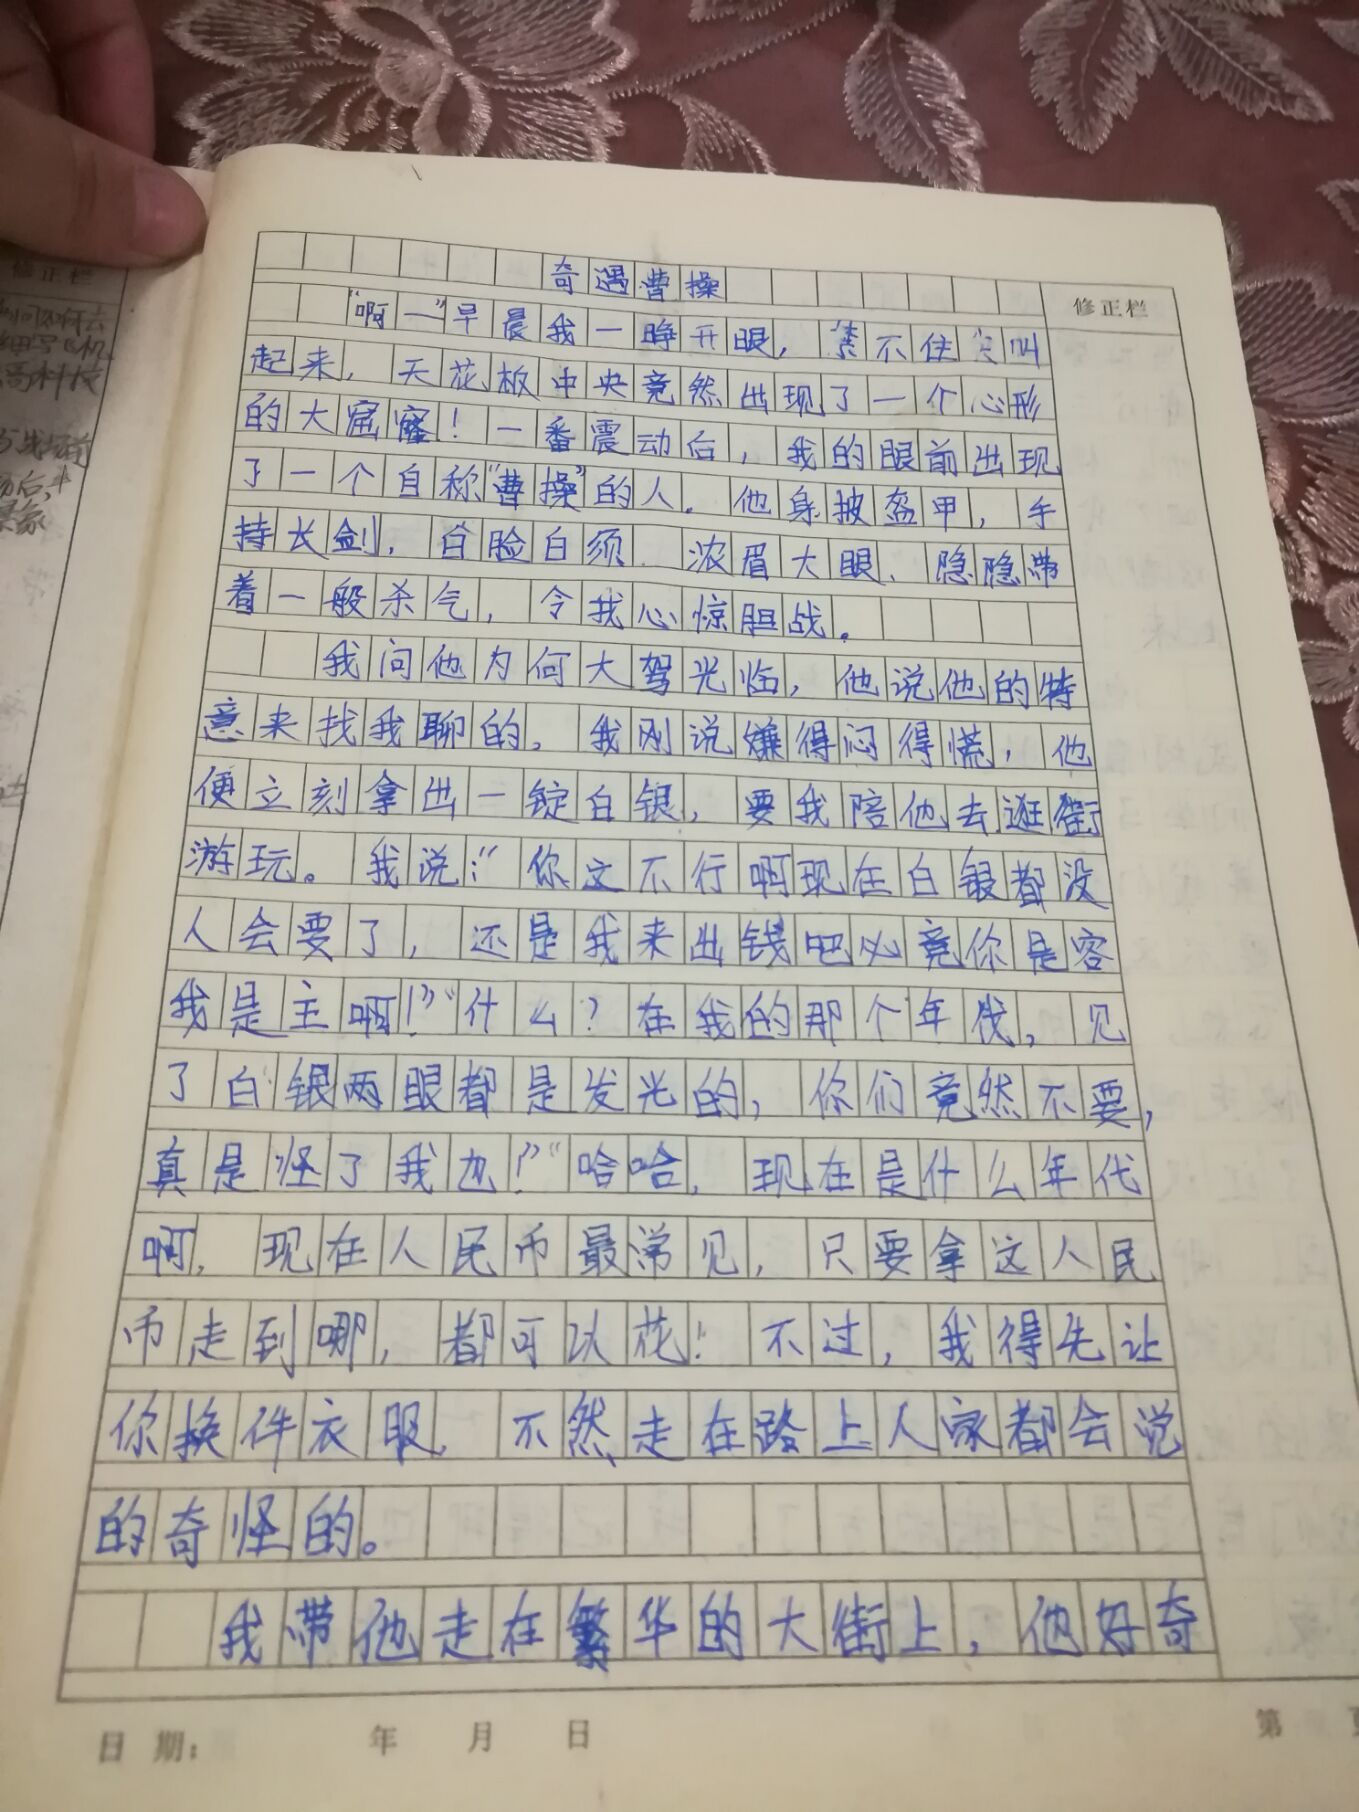 奇遇曹操
修正栏
“啊一”早晨我一睁开眼，禁不住尖叫
起来，天花板中央竟然出现了一个心形
的大窟窿！一番震动后，我的眼前出现
了一个自称“曹操”的人。他身披盔甲，手
持长剑，白脸白须 浓眉大眼、隐隐带
着一般杀气，令我心惊胆战。
我问他为何大驾光临，他说他的特
意来找我聊的。我刚说嫌得闷得慌，他
便立刻拿出一锭白银，要我陪他去逛街
游玩。我说：“你这不行啊现在白银都没
人会要了，还是我来出钱吧必竟你是客
我是主啊！”“什么？在我的那个年代，见
了白银两眼都是发光的，你们竟然不要，
真是怪了我也！”“哈哈，现在是什么年代
啊，现在人民币最常见，只要拿这人民
币走到哪，都可以花！不过，我得先让
你换件衣服，不然走在路上人家都会说
的奇怪的。
我带他走在繁华的大街上，他好奇
日 期： 年 月 日
第
修正栏